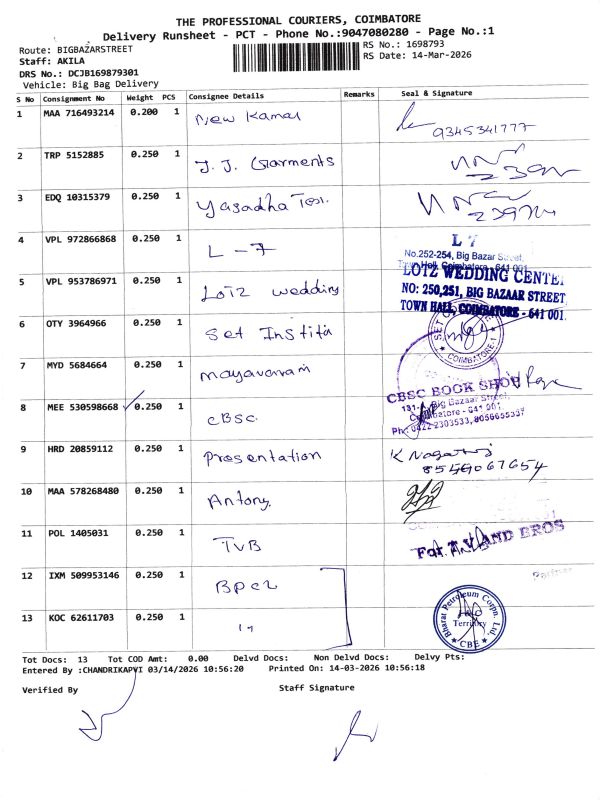 THE PROFESSIONAL COURIERS, COIMBATORE
Delivery Runsheet - PCT - Phone No.:9047080280 - Page No.:1
Route: BIGBAZARSTREET
RS No.: 1698793
Staff: AKILA
RS Date: 14-Mar-2026
DRS No.: DCJB169879301
Vehicle: Big Bag Delivery
S No Consignment No Weight PCS Consignee Details Remarks Seal & Signature
1 MAA 716493214 0.200 1 New Kamal 9345341777
2 TRP 5152885 0.250 1 J.J. Garments
3 EDQ 10315379 0.250 1 Yasadha Tex.
4 VPL 972866868 0.250 1 L-7
L 7
No.252-254, Big Bazar Street,
Town Hall, Coimbatore - 641 001.
5 VPL 953786971 0.250 1 Lotz wedding
LOTZ WEDDING CENTER
NO: 250,251, BIG BAZAAR STREET,
TOWN HALL, COIMBATORE - 641 001.
6 OTY 3964966 0.250 1 Set Instita
SET OF
COIMBATORE-1
7 MYD 5684664 0.250 1 mayavaram
8 MEE 530598668 0.250 1 CBSC
CBSC BOOK SHOP
131- Big Bazaar Street,
Coimbatore - 641 001.
Ph: 0422 2303533, 8056655537
9 HRD 20859112 0.250 1 Presentation K Nagaraj
10 MAA 578268480 0.250 1 Antony
11 POL 1405031 0.250 1 TVB
For T.V.AND BROS
Partner
12 IXM 509953146 0.250 1 BPCL
13 KOC 62611703 0.250 1 "
Bharat Petroleum Corpn. Ltd.
Territory
CBE
Tot Docs: 13 Tot COD Amt: 0.00 Delvd Docs: Non Delvd Docs: Delvy Pts:
Entered By :CHANDRIKAPVI 03/14/2026 10:56:20 Printed On: 14-03-2026 10:56:18
Verified By Staff Signature